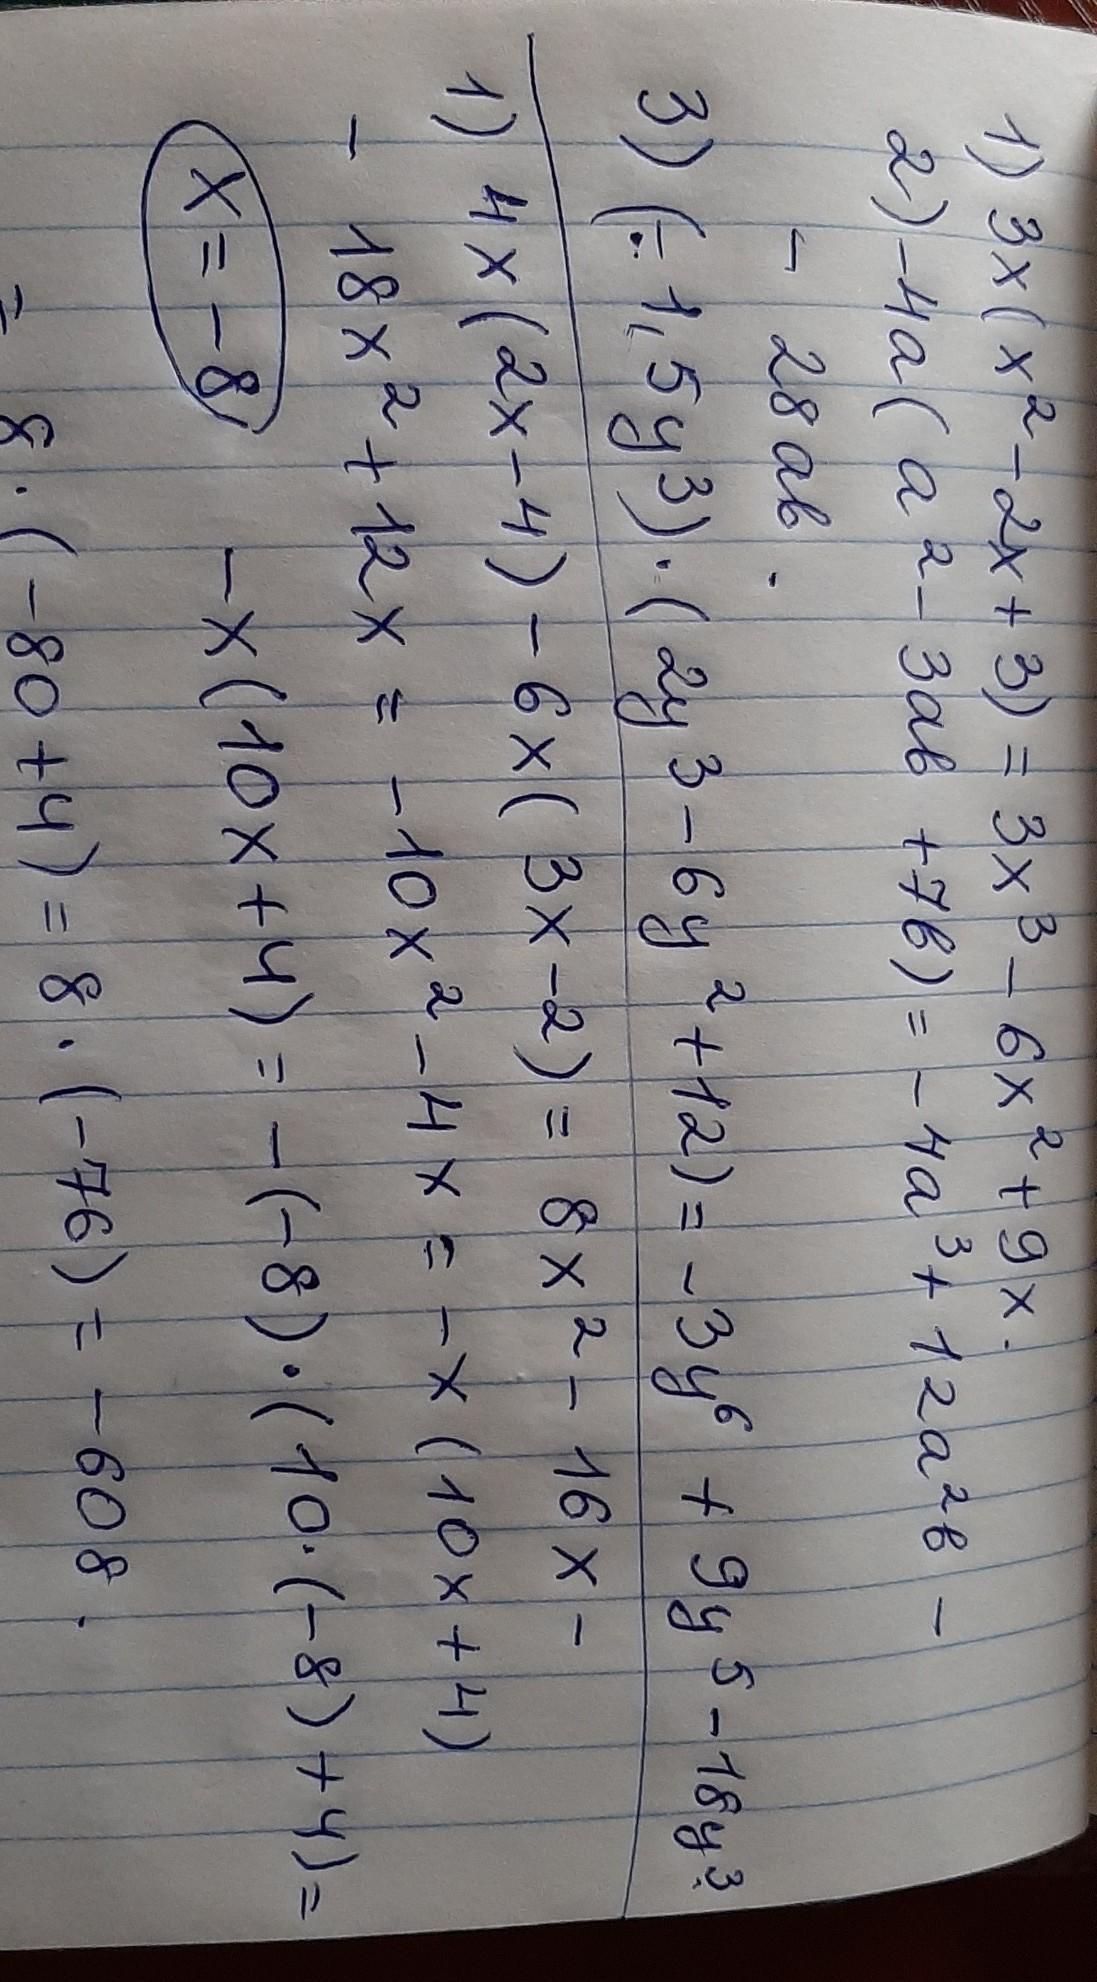 1) 3x(x² - 2x + 3) = 3x³ - 6x² + 9x.
2) -4a(a² - 3ab + 7b) = -4a³ + 12a²b -
- 28ab.
3) (-1,5y³)·(2y³ - 6y² + 12) = -3y⁶ + 9y⁵ - 18y³.
1) 4x(2x - 4) - 6x(3x - 2) = 8x² - 16x -
- 18x² + 12x = -10x² - 4x = -x(10x + 4)
x = -8 -x(10x + 4) = -(-8)·(10·(-8) + 4) =
= 8·(-80 + 4) = 8·(-76) = -608.